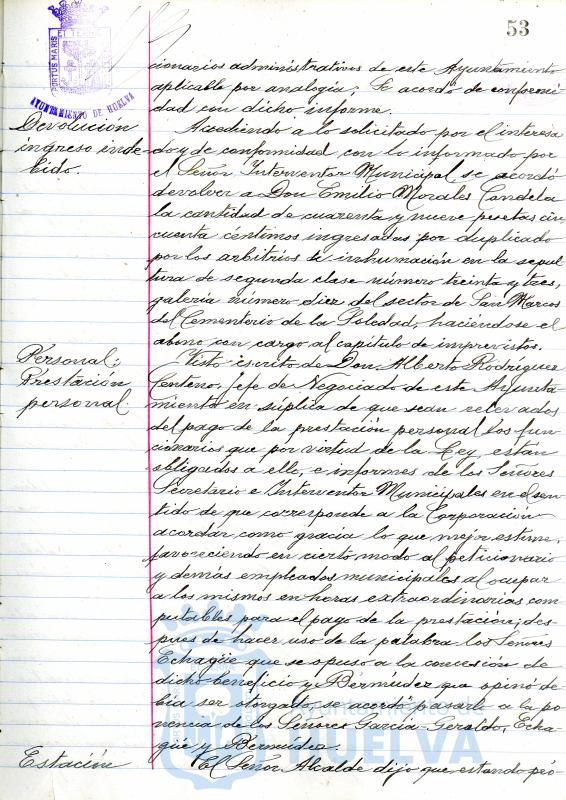 53
PORTUS MARIS
ET TERRAE
AYUNTAMIENTO DE HUELVA
cionarios administrativos de este Ayuntamiento
aplicable por analogia; Se acordó de conformi-
dad con dicho informe.
Devolución
ingreso inde-
bido.
Accediendo a lo solicitado por el interesa
do y de conformidad con lo informado por
el Señor Interventor Municipal se acordó
devolver a Don Emilio Morales Candela
la cantidad de cuarenta y nueve pesetas cin
cuenta céntimos ingresadas por duplicado
por los arbitrios de inhumación en la sepul-
tura de segunda clase número treinta y tres,
galeria número diez del sector de San Marcos
del Cementerio de la Soledad, haciéndose el
abono con cargo al capítulo de imprevistos.
Personal:
Prestación
personal
Visto escrito de Don Alberto Rodriguez
Centeno, Jefe de Negociado de este Ayunta-
miento en súplica de que sean relevados
del pago de la prestación personal los fun-
cionarios que por virtud de la Ley, están
obligados a ello, e informes de los Señores
Secretario e Interventor Municipales en el sen-
tido de que corresponde a la Corporación
acordar, como gracia lo que mejor estime,
favoreciendo en cierto modo al peticionario
y demás empleados municipales al ocupar
a los mismos en horas extraordinarias com
putables para el pago de la prestación; des-
pues de hacer uso de la palabra los Señores
Echagüe que se opuso a la concesión de
dicho beneficio y Bermúdez que opinó de-
bía ser otorgado, se acordó pasarle a la po
nencia de los Señores García-Geraldo, Echa
güe y Bermúdez.
Estación
El Señor Alcalde dijo que estando pró-
HUELVA